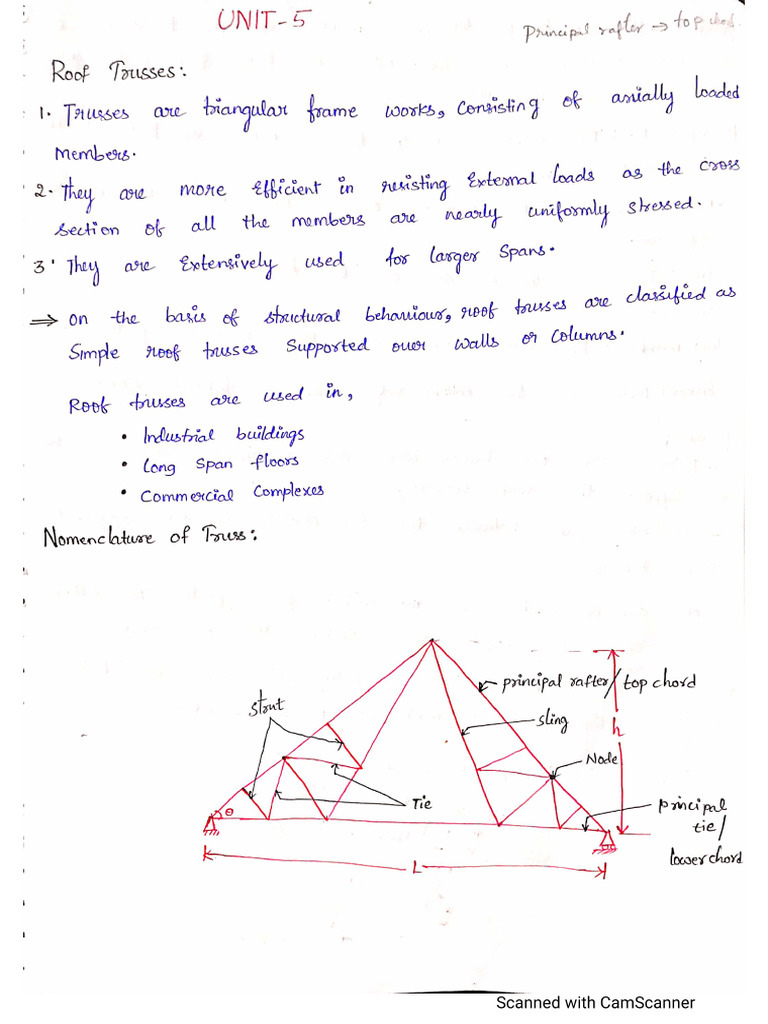 UNIT-5
Principal rafter → top chod.
Roof Trusses:
1. Trusses are triangular frame works, consisting of axially loaded
members.
2. They are more efficient in resisting external loads as the cross
section of all the members are nearly uniformly stressed.
3. They are extensively used for larger spans.
⇒ on the basis of structural behaviour, roof trusses are classified as
Simple roof trusses supported over walls or columns.
Roof trusses are used in,
• Industrial buildings
• Long span floors
• Commercial complexes
Nomenclature of Truss:
principal rafter/top chord
strut
sling
h
Node
Tie
principal
tie/
lower chord
θ
L
Scanned with CamScanner